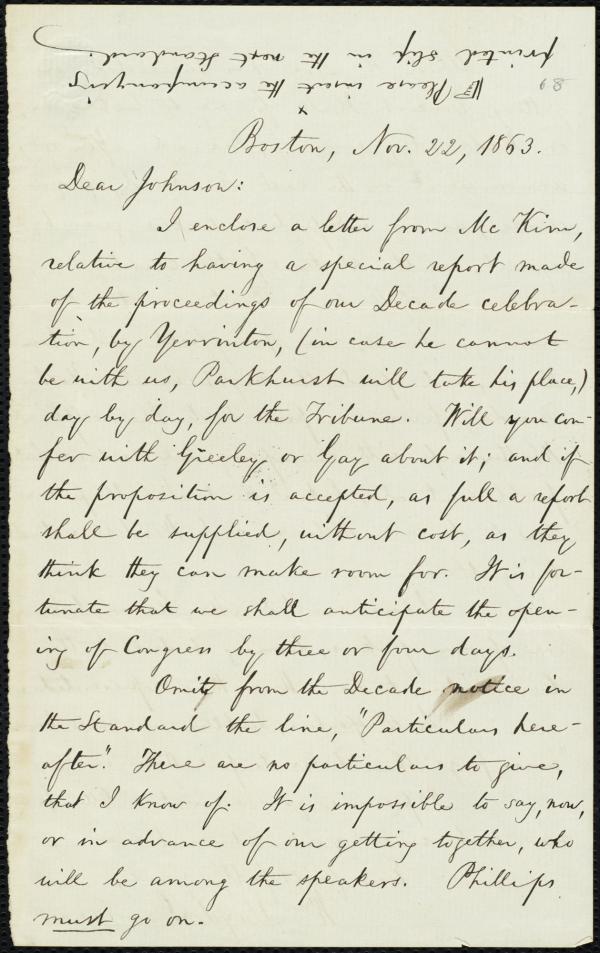 ☞ Please insert the accompanying
printed slip in the next Standard.
68
Boston, Nov. 22, 1863.
Dear Johnson:
I enclose a letter from McKim,
relative to having a special report made
of the proceedings of our Decade celebra-
tion, by Yerrinton, (in case he cannot
be with us, Parkhurst will take his place,)
day by day, for the Tribune. Will you con-
fer with Greeley or Gay about it; and if
the proposition is accepted, as full a report
shall be supplied, without cost, as they
think they can make room for. It is for-
tunate that we shall anticipate the open-
ing of Congress by three or four days.
Omit from the Decade notice in
the Standard the line, "Particulars here-
after." There are no particulars to give,
that I know of. It is impossible to say, now,
or in advance of our getting together, who
will be among the speakers. Phillips
must go on.